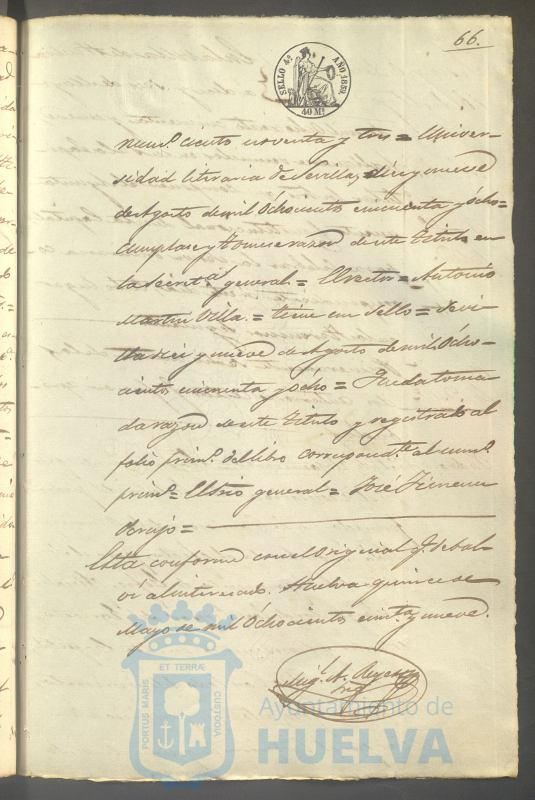 66.
SELLO 4º AÑO 1859.
40 Ms
num.º ciento noventa y tres = Univer-
sidad literaria de Sevilla, diez y nueve
de Agosto de mil Ochocientos cincuenta y Ocho =
Cumplase y tomese razon de este Titulo en
la Secret.ª general = El rector = Antonio
Martin Villa = tiene un Sello = Sevi-
lla diez y nueve de Agosto de mil Ocho-
cientos cincuenta y Ocho = Queda toma-
da razon de este Titulo y registrado al
folio prim.º del libro correspond.te al num.º
prim.º = El Srio general = José Jimenez
Orujo =
Está conforme con el Original q.e debol-
ví al interesado. Huelva quince de
Mayo de mil Ochocientos cinc.ta y nueve.
Mig.l A.
PORTUS MARIS ET TERRÆ CUSTODIA
Ayuntamiento de
HUELVA